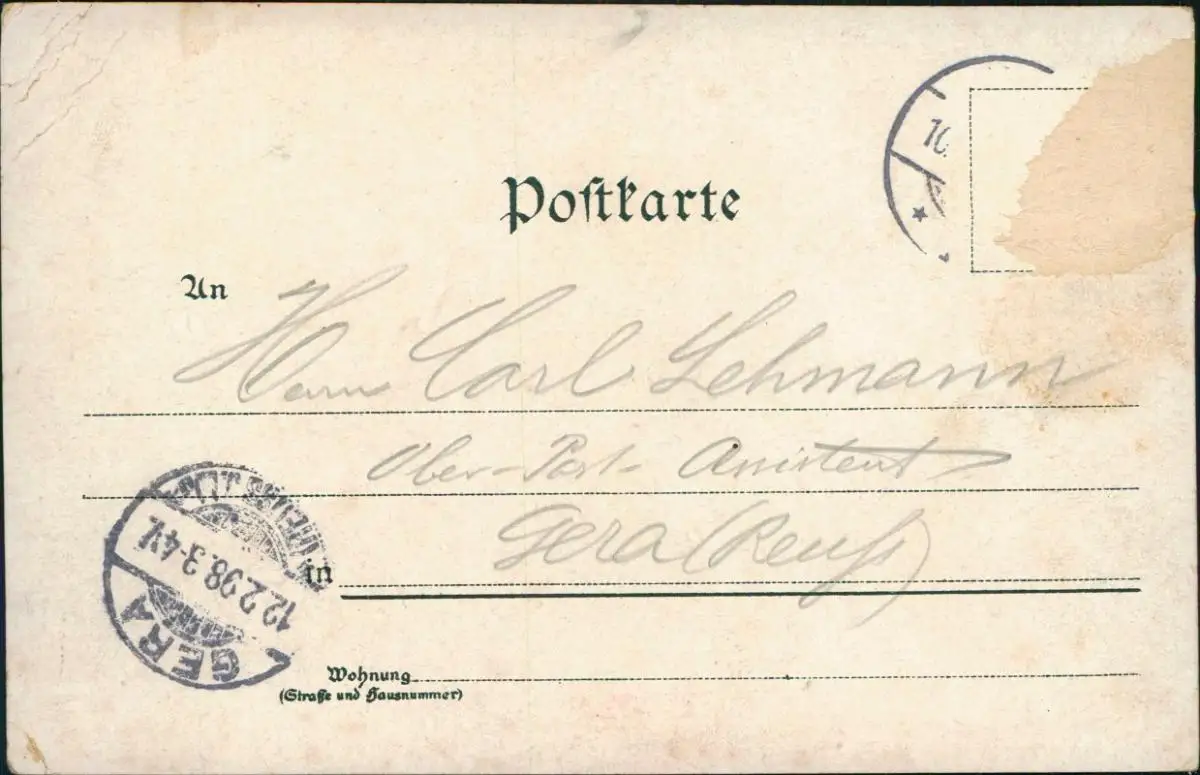 Postkarte
An
Herrn Carl Lehmann
Ober-Post-Assistent
Gera (Reuß)
in
GERA
12.2.98.3-4V.
Wohnung
(Straße und Hausnummer)